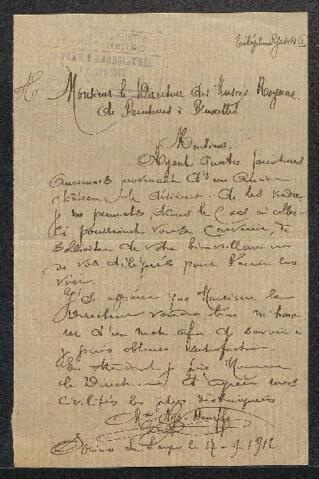 Monsieur le Directeur des Musées Royaux
de Peintures à Bruxelles
Monsieur,
Ayant quatre peintures
anciennes provenant d'un ancien
château et désirant de les vendre
je me permets, dans le cas où elles
ci pourraient vous convenir, de
solliciter de votre bienveillance un
de vos délégués pour venir les
voir.
J'ose espérer que Monsieur le
Directeur voudra bien m'hono
rer d'un mot afin de savoir si
je puis obtenir satisfaction
En attendant je prie Monsieur
le Directeur d'agréer mes
civilités les plus distinguées
le 17-9-1912